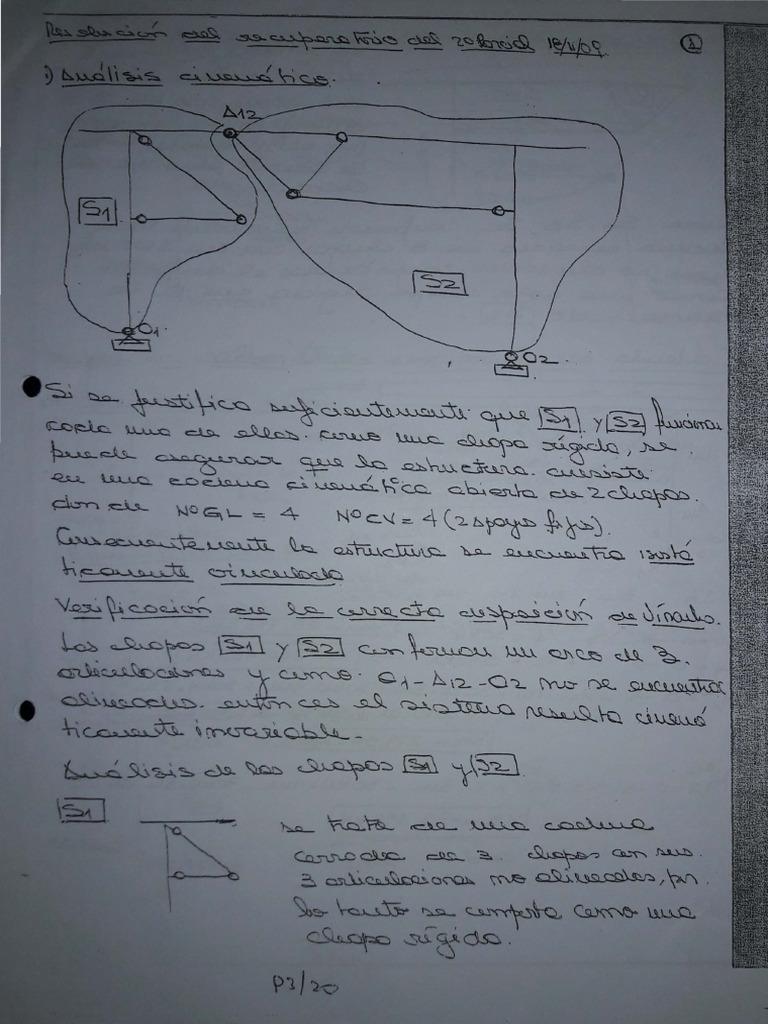 Resolución del recuperatorio del 2o Parcial 18/11/09. 1
1) Análisis cinemático.
Δ12
S1
S2
O1
O2
Si se justifica suficientemente que S1 y S2 funcionan
cada una de ellas como una chapa rígida, se
puede asegurar que la estructura consiste
en una cadena cinemática abierta de 2 chapas.
donde NºGL = 4 NºCV = 4 (2 apoyos fijos).
Consecuentemente la estructura se encuentra isostá
ticamente vinculada
Verificación de la correcta disposición de vínculos.
Las chapas S1 y S2 conforman un arco de 3
articulaciones y como O1-Δ12-O2 no se encuentran
alineados. entonces el sistema resulta cinemá
ticamente invariable.-
Análisis de las chapas S1 y S2
S1
se trata de una cadena
cerrada de 3 chapas con sus
3 articulaciones no alineadas, por
lo tanto se comporta como una
chapa rígida.
P3/20